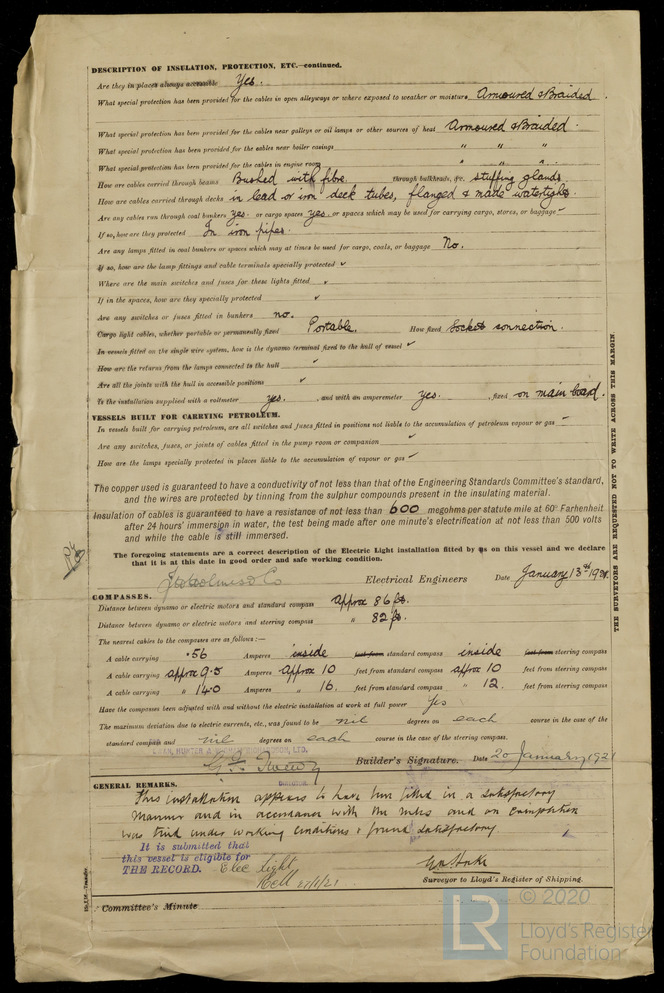 DESCRIPTION OF INSULATION, PROTECTION, ETC.—continued.
Are they in places always accessible Yes.
What special protection has been provided for the cables in open alleyways or where exposed to weather or moisture Armoured & Braided.
What special protection has been provided for the cables near galleys or oil lamps or other sources of heat Armoured & Braided.
What special protection has been provided for the cables near boiler casings " " "
What special protection has been provided for the cables in engine room " " "
How are cables carried through beams Bushed with fibre. through bulkheads, &c. stuffing glands.
How are cables carried through decks in lead or iron deck tubes, flanged & made watertight.
Are any cables run through coal bunkers yes. or cargo spaces yes. or spaces which may be used for carrying cargo, stores, or baggage ✓
If so, how are they protected In iron pipes.
Are any lamps fitted in coal bunkers or spaces which may at times be used for cargo, coals, or baggage No.
If so, how are the lamp fittings and cable terminals specially protected ✓
Where are the main switches and fuses for these lights fitted ✓
If in the spaces, how are they specially protected ✓
Are any switches or fuses fitted in bunkers no.
Cargo light cables, whether portable or permanently fixed Portable. How fixed Socket connection.
In vessels fitted on the single wire system, how is the dynamo terminal fixed to the hull of vessel ✓
How are the returns from the lamps connected to the hull ✓
Are all the joints with the hull in accessible positions ✓
Is the installation supplied with a voltmeter yes. , and with an amperemeter yes. , fixed on main board.
VESSELS BUILT FOR CARRYING PETROLEUM.
In vessels built for carrying petroleum, are all switches and fuses fitted in positions not liable to the accumulation of petroleum vapour or gas –
Are any switches, fuses, or joints of cables fitted in the pump room or companion ✓
How are the lamps specially protected in places liable to the accumulation of vapour or gas ✓
The copper used is guaranteed to have a conductivity of not less than that of the Engineering Standards Committee's standard,
and the wires are protected by tinning from the sulphur compounds present in the insulating material.
Insulation of cables is guaranteed to have a resistance of not less than 600 megohms per statute mile at 60° Farhenheit
after 24 hours' immersion in water, the test being made after one minute's electrification at not less than 500 volts
and while the cable is still immersed.
The foregoing statements are a correct description of the Electric Light installation fitted by us on this vessel and we declare
that it is at this date in good order and safe working condition.
J H Holmes & Co Electrical Engineers Date January 13th 1921.
COMPASSES.
Distance between dynamo or electric motors and standard compass Approx 86 ft.
Distance between dynamo or electric motors and steering compass " 82 ft.
The nearest cables to the compasses are as follows:—
A cable carrying .56 Amperes inside feet from standard compass inside feet from steering compass
A cable carrying approx 9.5 Amperes Approx 10 feet from standard compass approx 10 feet from steering compass
A cable carrying " 140 Amperes " 16. feet from standard compass " 12. feet from steering compass
Have the compasses been adjusted with and without the electric installation at work at full power Yes
The maximum deviation due to electric currents, etc., was found to be nil degrees on each course in the case of the
standard compass and nil degrees on each course in the case of the steering compass.
SWAN, HUNTER & WIGHAM RICHARDSON, LTD.
DIRECTOR
Builder's Signature. Date 20 January 1921
GENERAL REMARKS.
This installation appears to have been fitted in a satisfactory
manner and in accordance with the rules and on completion
was tried under working conditions & found satisfactory
It is submitted that
this vessel is eligible for
THE RECORD. Elec Light
27/1/21
Surveyor to Lloyd's Register of Shipping.
Committee's Minute
THE SURVEYORS ARE REQUESTED NOT TO WRITE ACROSS THIS MARGIN.
LR
© 2020
Lloyd's Register
Foundation